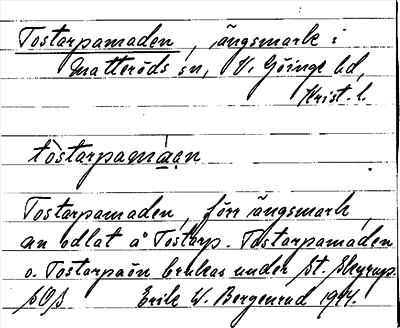 Tostarpamaden, ängsmark i
Matteröds sn, V. Göinge hd,
Krist. l.
tòstarpamáan
Tostarpamaden, förr ängsmark,
nu odlat å Tostarp. Tostarpamaden
o. Tostarpaön brukas under St. Skyrup.
SOS Erik W. Bergenrud 1944.